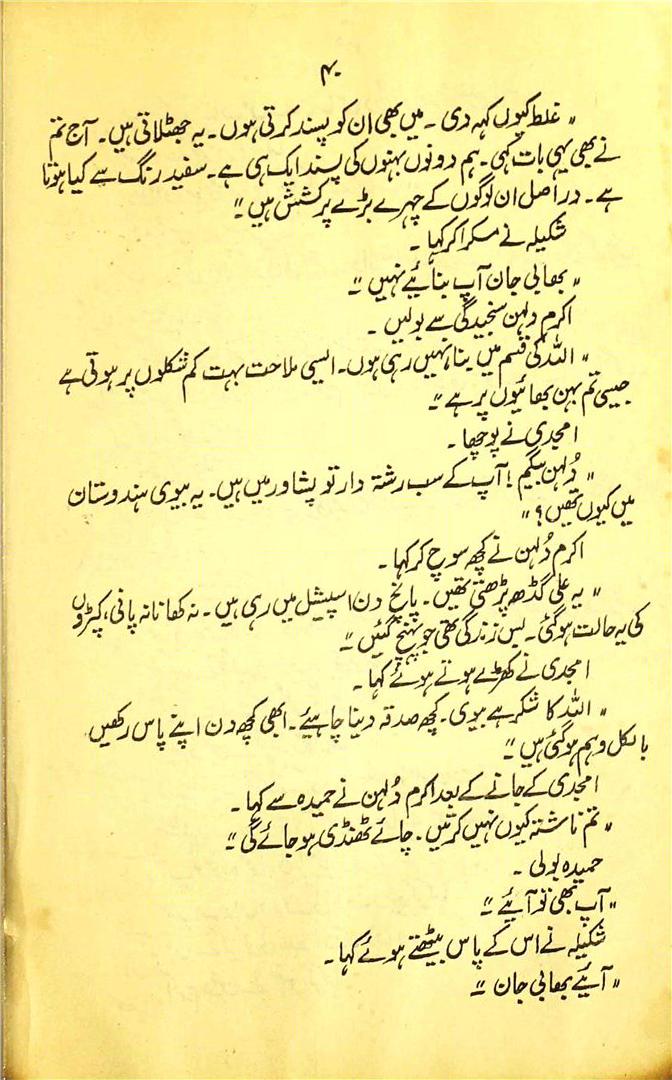 ۴۰
" غلط کیوں کہہ دی ۔ میں بھی ان کو پسند کرتی ہوں ۔ یہ جھٹلاتی ہیں ۔ آج تم
نے بھی یہی بات کہی ۔ ہم دونوں بہنوں کی پسند ایک ہی ہے ۔ سفید رنگ سے کیا ہوتا
ہے ۔ در اصل ان لوگوں کے چہرے بڑے پرکشش ہیں "
شکیلہ نے مسکرا کر کہا ۔
" بھابی جان آپ بنائیے نہیں "
اکرم دلہن سنجیدگی سے بولیں ۔
" اللہ کی قسم میں بنا نہیں رہی ہوں ۔ ایسی ملاحت بہت کم شکلوں پر ہوتی ہے
جیسی تم بہن بھائیوں پر ہے "
امجدی نے پوچھا ۔
" دُلہن بیگم ! آپ کے سب رشتہ دار تو پشاور میں ہیں ۔ یہ بیوی ہندوستان
میں کیوں تھیں ؟ "
اکرم دُلہن نے کچھ سوچ کر کہا ۔
" یہ علی گڈھ پڑھتی تھیں ۔ پانچ دن اسپیشل میں رہی ہیں ۔ نہ کھانا نہ پانی، کپڑوں
کی یہ حالت ہو گئی ۔ بس زندگی تھی جو پہنچ گئیں "
امجدی نے کھڑے ہوتے ہوئے کہا ۔
" اللہ کا شکر ہے بیوی ۔ کچھ صدقہ دینا چاہیئے ۔ ابھی کچھ دن اپنے پاس رکھیں
بالکل وہم ہو گئی ہیں "
امجدی کے جانے کے بعد اکرم دُلہن نے حمیدہ سے کہا ۔
" تم ناشتہ کیوں نہیں کرتیں ۔ چائے ٹھنڈی ہو جائے گی "
حمیدہ بولی ۔
" آپ بھی تو آیئے "
شکیلہ نے اس کے پاس بیٹھتے ہوئے کہا ۔
" آیئے بھابی جان "